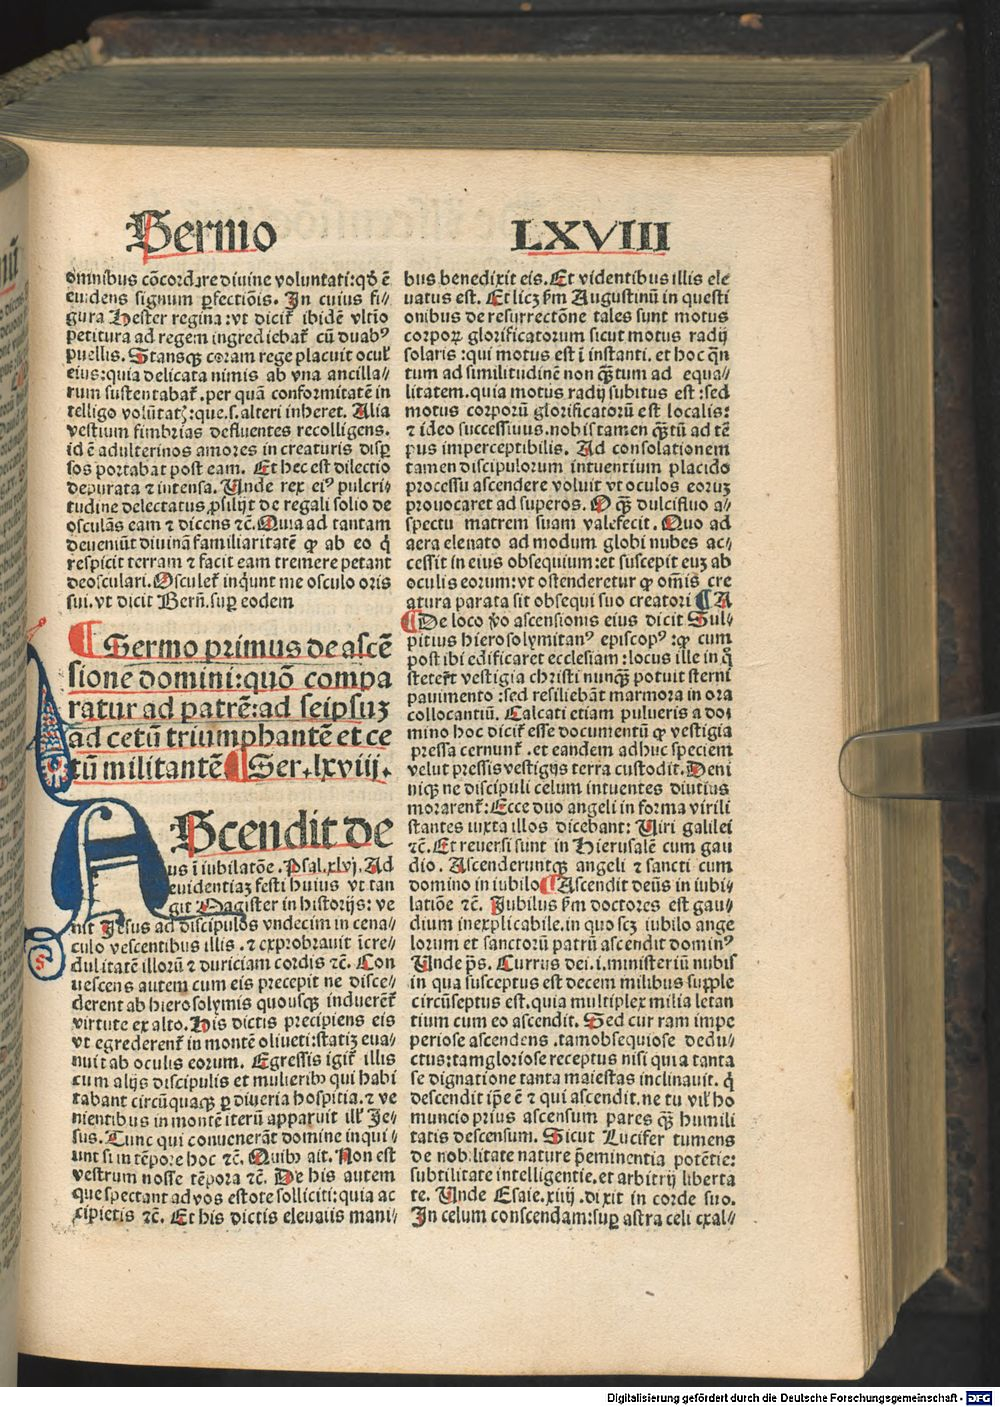 Sermo LXVIII
omnibus cõcordare diuine voluntati: qđ ẽ
euidens signum ꝑfectiõis. In cuius fi⸗
gura Hester regina: vt dicit᷑ ibidẽ vltio
petitura ad regem ingrediebat᷑ cũ duabꝰ
puellis. Stansqꝫ coram rege placuit ocul᷑
eius: quia delicata nimis ab vna ancilla⸗
rum sustentabat᷑. per quã conformitatẽ in
telligo volũtatꝭ: que .s. alteri inheret. Alia
vestium fimbrias defluentes recolligens.
id ẽ adulterinos amores in creaturis disꝑ
sos portabat post eam. Et hec est dilectio
depurata ⁊ intensa. Unde rex eiꝰ pulcri⸗
tudine delectatus ꝓsilijt de regali solio de
osculãs eam ⁊ dicens ⁊c̃. Quia ad tantam
deueniũt diuinã familiaritatẽ ꝙ ab eo q̇
respicit terram ⁊ facit eam tremere petant
deosculari. Osculet᷑ inq̇unt me osculo oris
sui. vt dicit Bern̄. suꝑ eodem
¶ Sermo primus de ascẽ
sione domini: quõ compa
ratur ad patrẽ: ad seipsuꝫ
ad cetũ triumphantẽ et ce
tũ militantẽ ¶ Ser. lxviij.
AScendit de
us ĩ iubilatõe. Psal. xlvj. Ad
euidentiaꝫ festi huius vt tan
git Magister in historijs: ve
nit Jesus ad discipulos vndecim in cena⸗
culo vescentibus illis. ⁊ exprobrauit ĩcre⸗
dulitatẽ illorũ ⁊ duriciam cordis ⁊c̃. Con
uescens autem cum eis precepit ne disce⸗
derent ab hierosolymis quousqꝫ induerẽt᷑
virtute ex alto. His dictis precipiens eis
vt egrederent᷑ in montẽ oliueti: statiꝫ eua⸗
nuit ab oculis eorum. Egressis igit᷑ illis
cum alijs discipulis et mulieribꝰ qui habi
tabant circũquaqꝫ ꝑ diuersa hospitia. ⁊ ve
nientibus in montẽ iterũ apparuit ill᷑ Je⸗
sus. Tunc qui conuenerãt domine inqui⸗
unt si in tẽpore hoc ⁊c̃. Quibꝰ ait. Non est
vestrum nosse tẽpora ⁊c̃. De his autem
que spectant ad vos estote solliciti: quia ac
cipietis ⁊c̃. Et his dictis eleuatis mani⸗
bus benedixit eis. Et videntibus illis ele
uatus est. Et licꝫ ẜm Augustinũ in questi
onibus de resurrectõne tales sunt motus
corpoꝝ glorificatorum sicut motus radij
solaris: qui motus est ĩ instanti. et hoc q̃n
tum ad similitudinẽ non q̃ꝫtum ad equa⸗
litatem. quia motus radij subitus est: sed
motus corporũ glorificatorũ est localis:
⁊ ideo successiuus. nobis tamen q̃ꝫtũ ad tẽ
pus imperceptibilis. Ad consolationem
tamen discipulorum intuentium placido
processu ascendere voluit vt oculos eoruꝫ
prouocaret ad superos. O q̃ꝫ dulcifluo a⸗
spectu matrem suam valefecit. Quo ad
aera eleuato ad modum globi nubes ac⸗
cessit in eius obsequium: et suscepit euꝫ ab
oculis eorum: vt ostenderetur ꝙ om̃is cre
atura parata sit obsequi suo creatori ¶ A
¶ De loco ṽo ascensionis eius dicit Sul⸗
pitius hierosolymitanꝰ episcopꝰ: ꝙ cum
post ibi edificaret ecclesiam: locus ille in q̊
stetert᷑ vestigia christi nunqꝫ potuit sterni
pauimento: sed resiliebãt marmora in ora
collocantiũ. Calcati etiam pulueris a do⸗
mino hoc dicit᷑ esse documentũ ꝙ vestigia
pressa cernunt᷑. et eandem adhuc speciem
velut pressis vestigijs terra custodit. Deni
niqꝫ ne discipuli celum intuentes diutius
morarent᷑: Ecce duo angeli in forma virili
stantes iuxta illos dicebant: Uiri galilei
⁊c̃. Et reuersi sunt in Hierusalẽ cum gau
dio. Ascenderuntqꝫ angeli ⁊ sancti cum
domino in iubilo ¶ Ascendit deũs in iubi⸗
latiõe ⁊c̃. Jubilus ẜm doctores est gau⸗
dium inexplicabile. in quo scꝫ iubilo ange
lorum et sanctorũ patrũ ascendit dominꝰ
Unde p̄s. Currus dei .i. ministeriũ nubis
in qua susceptus est decem milibus supple
circũseptus est. quia multiplex milia letan
tium cum eo ascendit. Sed cur ram impe
periose ascendens. tam obsequiose dedu⸗
ctus: tam gloriose receptus nisi quia tanta
se dignatione tanta maiestas inclinauit. q̇
descendit ip̃e ẽ ⁊ qui ascendit. ne tu vil᷑ ho
muncio prius ascensum pares q̃ꝫ humili
tatis descensum. Sicut Lucifer tumens
de nobilitate nature p̄eminentia potẽtie:
subtilitate intelligentie. et arbitrij liberta
te. Unde Esaie. xiiij. dixit in corde suo.
In celum conscendam: suꝑ astra celi exal⸗
Digitalisierung gefördert durch die Deutsche Forschungsgemeinschaft - DFG